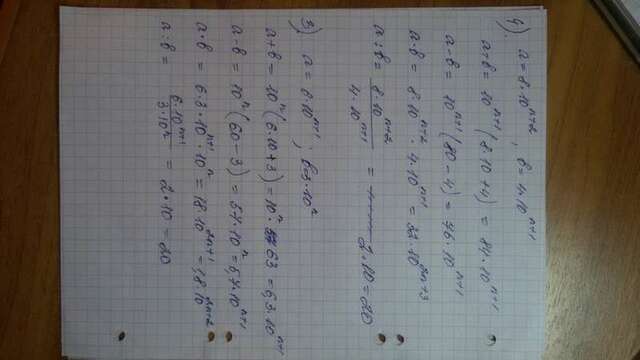 4). a = 8·10^{n+2}, b = 4·10^{n+1}
a+b = 10^{n+1}(8·10+4) = 84·10^{n+1}
a-b = 10^{n+1}(80-4) = 76·10^{n+1}
a·b = 8·10^{n+2}·4·10^{n+1} = 32·10^{2n+3}
a:b = 8·10^{n+2}/4·10^{n+1} = 2·10 = 20
3). a = 6·10^{n+1}; b=3·10^n
a+b = 10^n(6·10+3) = 10^n·63 = 6,3·10^{n+1}
a-b = 10^n(60-3) = 57·10^n = 5,7·10^{n+1}
a·b = 6·3·10^{n+1}·10^n = 18·10^{2n+1} = 1,8·10^{2n+2}
a:b = 6·10^{n+1}/3·10^n = 2·10 = 20